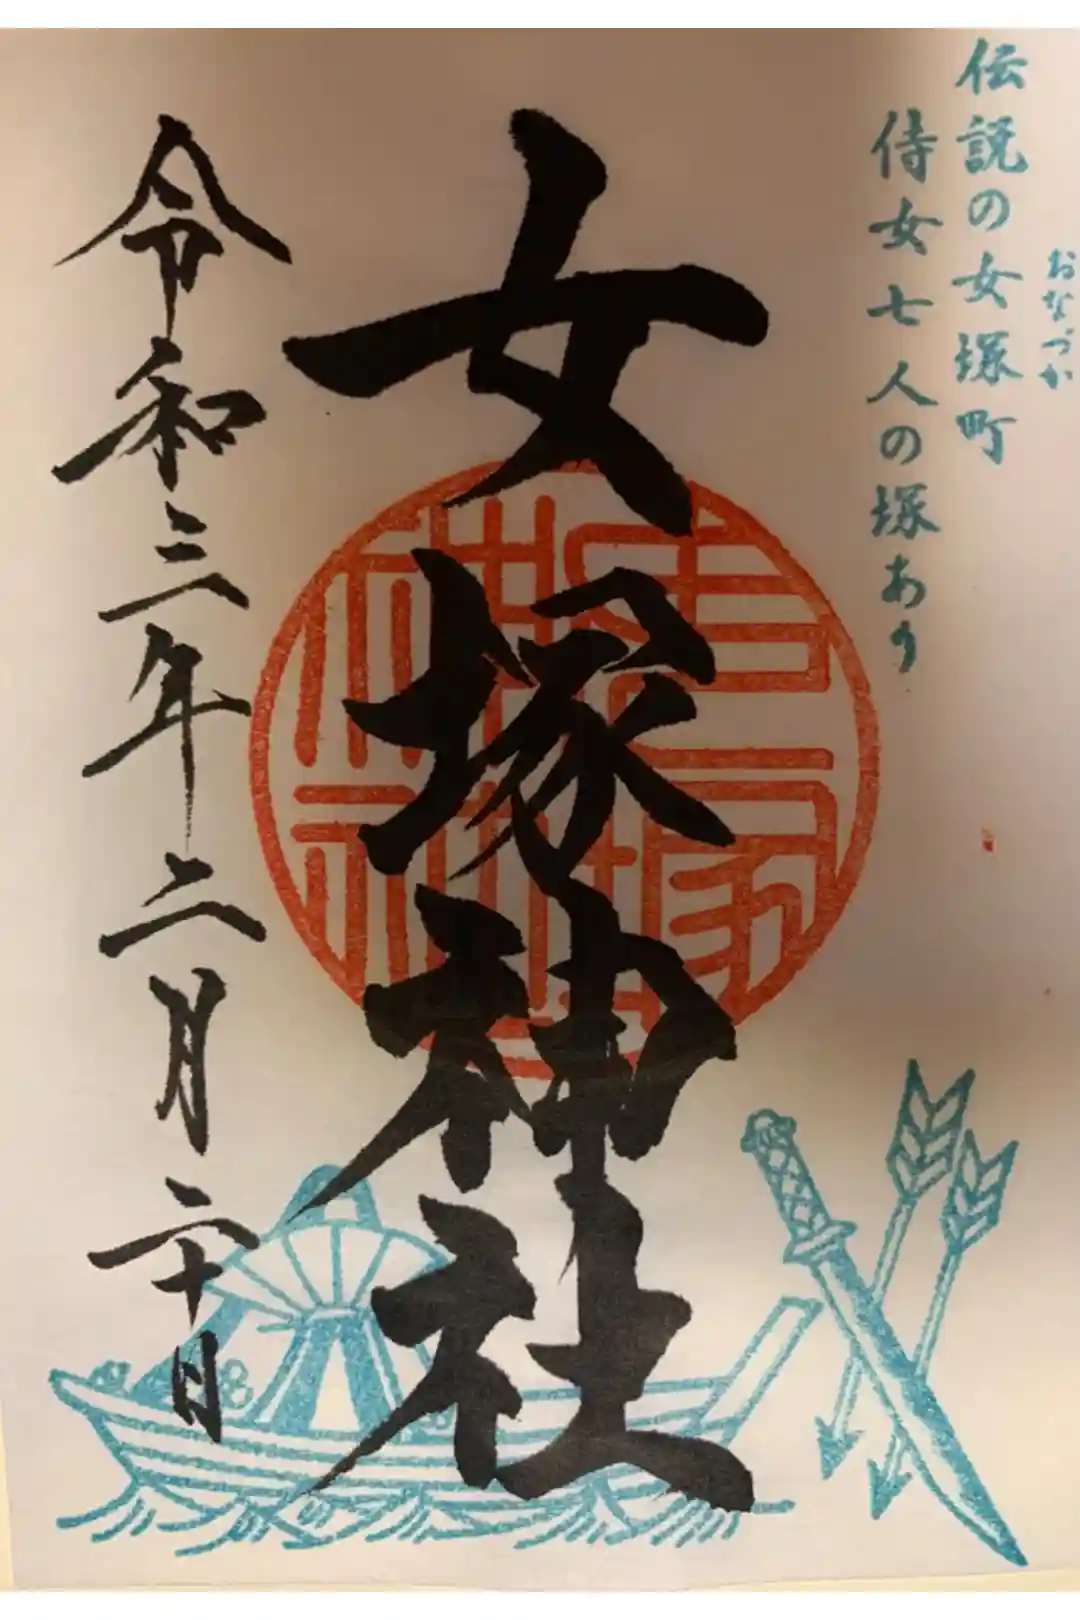 おなづか
伝説の女塚町
侍女七人の塚あり
女塚神社
令和三年二月二十日